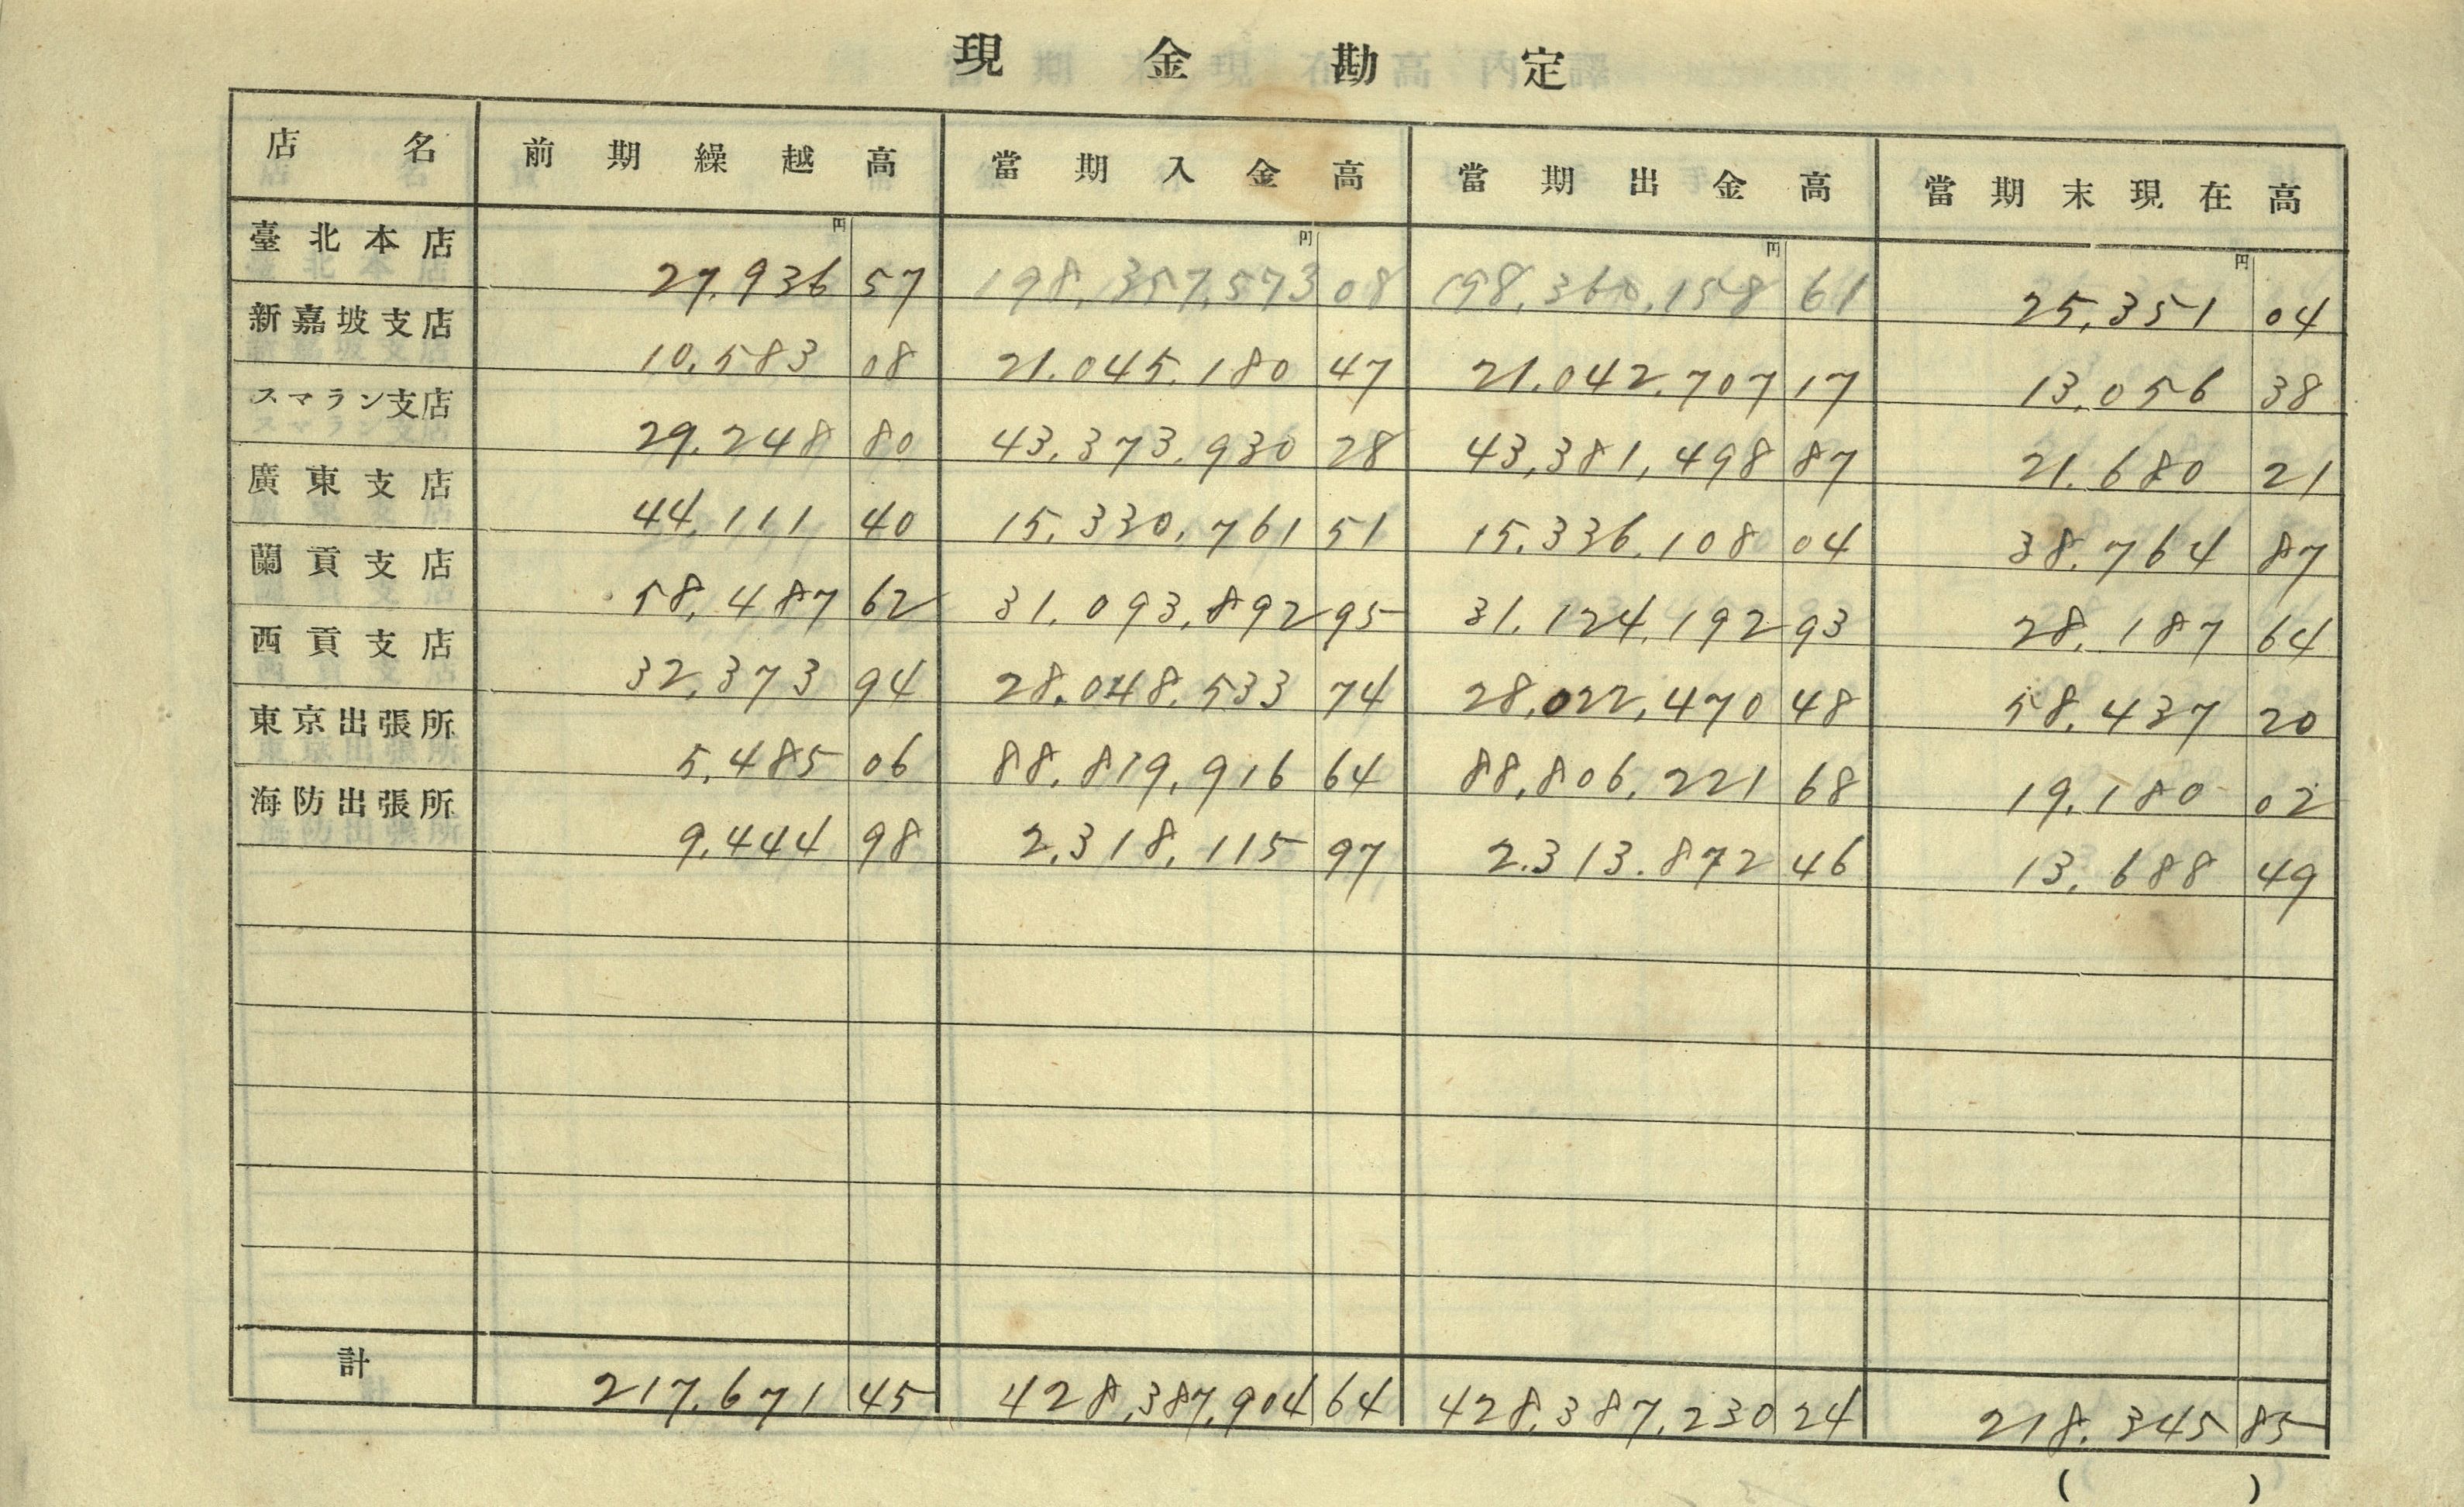 現金勘定
店名 前期繰越高 當期入金高 當期出金高 當期末現在高
円 円 円 円
臺北本店 27,936 57 198,357,573 08 198,360,158 61 25,351 04
新嘉坡支店 10,583 08 21.045.180 47 21.042.707 17 13,056 38
スマラン支店 29.248 80 43,373,930 28 43,381,498 87 21.680 21
廣東支店 44,111 40 15,330,761 51 15.336.108 04 38.764 87
蘭貢支店 58,487 62 31.093,892 95 31.124,192 93 28,187 64
西貢支店 32,373 94 28.048.533 74 28,022,470 48 58.437 20
東京出張所 5,485 06 88.819,916 64 88,806,221 68 19,180 02
海防出張所 9,444 98 2,318,115 97 2.313.872 46 13,688 49
計 217,671 45 428,387,904 64 428,387,230 24 218,345 85
( )